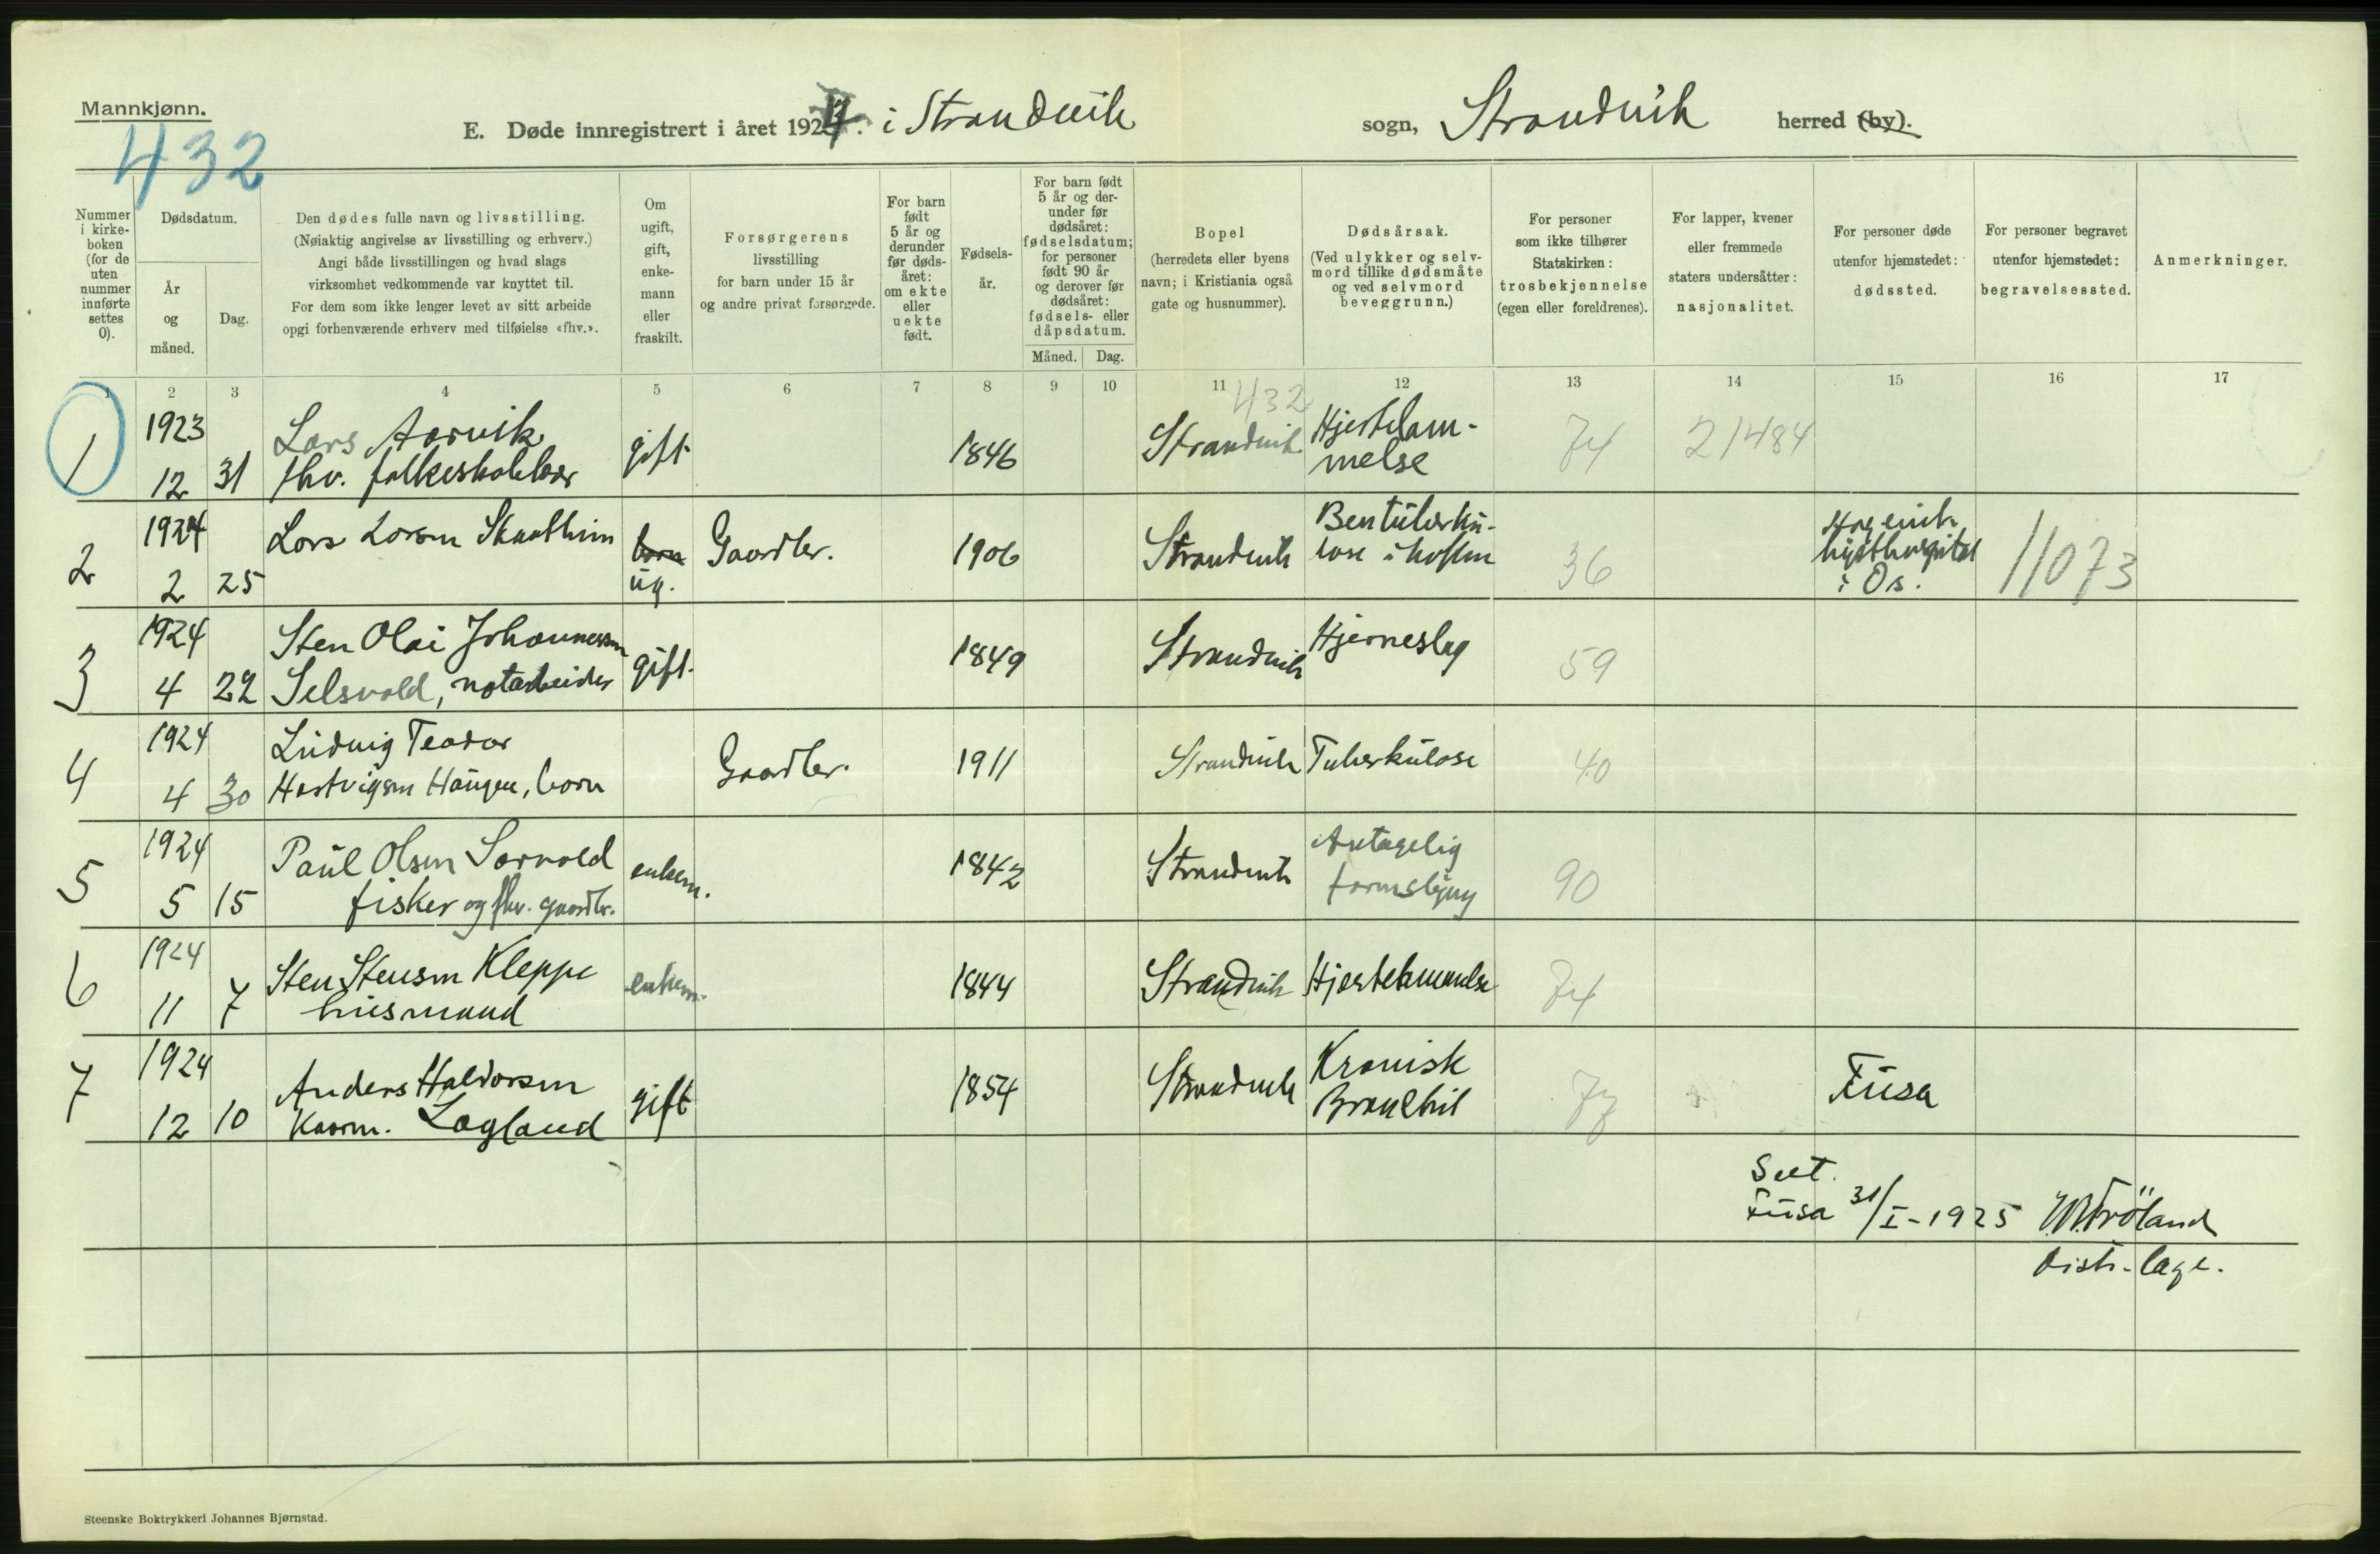 Mannkjønn.
432
E. Døde innregistrert i året 1924. i Strandvik sogn, Strandvik herred (by).
Nummer
i kirke-
boken
(for de
uten
nummer
innførte
settes
0).
Dødsdatum.
År
og
måned.
Dag.
Den dødes fulle navn og livsstilling.
(Nøiaktig angivelse av livsstilling og erhverv.)
Angi både livsstillingen og hvad slags
virksomhet vedkommende var knyttet til.
For dem som ikke lenger levet av sitt arbeide
opgi forhenværende erhverv med tilføielse «fhv.».
Om
ugift,
gift,
enke-
mann
eller
fraskilt.
Forsørgerens
livsstilling
for barn under 15 år
og andre privat forsørgede.
For barn
født
5 år og
derunder
før døds-
året:
om ekte
eller
uekte
født.
Fødsels-
år.
For barn født
5 år og der-
under før
dødsåret:
fødselsdatum;
for personer
født 90 år
og derover før
dødsåret:
fødsels- eller
dåpsdatum.
Måned. Dag.
Bopel
(herredets eller byens
navn; i Kristiania også
gate og husnummer).
Dødsårsak.
(Ved ulykker og selv-
mord tillike dødsmåte
og ved selvmord
beveggrunn.)
For personer
som ikke tilhører
Statskirken:
trosbekjennelse
(egen eller foreldrenes).
For lapper, kvener
eller fremmede
staters undersåtter:
nasjonalitet.
For personer døde
utenfor hjemstedet:
dødssted.
For personer begravet
utenfor hjemstedet:
begravelsessted.
Anmerkninger.
1 2 3 4 5 6 7 8 9 10 11 12 13 14 15 16 17
432
1923 Lars Aarvik Hjertelam-
1 12 31 fhv. folkeskolelær gift 1846 Strandvik melse 74 21484
1924 Lars Larsen Bentuberku- Hagevik
2 barn Gaardbr. 1906 Strandvik lose i hoften 36 kysthospital 11073
2 25 ug. i Os.
1924 Sten Olai Johannessen Hjerneslag
3 4 22 Selsvold, notarbeider gift. 1849 Strandvik 59
1924 Ludvig Teodor
4 4 30 Hartvigsen Haugen, barn Gaardbr. 1911 Strandvik Tuberkulose 40
1924 Paul Olsen Sørvold Antagelig
5 5 15 fisker og fhv. gaardbr. enkem. 1842 Strandvik tarmslyng 90
1924 Sten Stensen Kleppe
6 11 7 husmand enkem. 1844 Strandvik Hjertelammelse 74
1924 Anders Haldorsen Kronisk
7 12 10 Kaarm. Lagland gift 1854 Strandvik Bronchit 77 Fusa
Seet.
Fusa 31/I-1925 Frøland
distr.læge.
Steenske Boktrykkeri Johannes Bjørnstad.